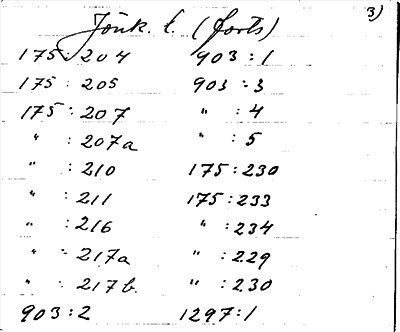 3)
Jönk. l. (forts)
175:204 903:1
175:205 903:3
175:207 " :4
" :207a " :5
" :210 175:230
" :211 175:233
" :216 " :234
" :217a " :229
" :217b " :230
903:2 1297:1